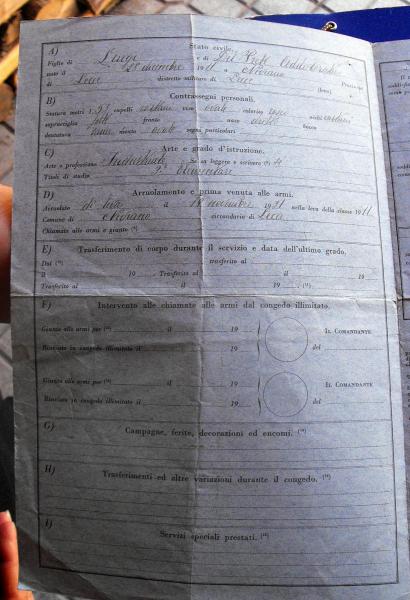 A) Stato civile.
Figlio di Luigi e di Del Prete Addolorata
nato il 28 dicembre 1911 a Noviano Provincia
di Lecce distretto militare di Lecce (leva)
B) Contrassegni personali.
Statura metri 1, capelli castani viso ovale colorito roseo occhi castani
sopracciglia folte fronte naso bocca
dentatura sana mento ovale segni particolari
C) Arte e grado d'istruzione.
Arte o professione Se sa leggere e scrivere (³) si
Titoli di studio elementare
D) Arruolamento e prima venuta alle armi.
Arruolato di leva il novembre 1931 nella leva della classe 1911
Comune di Noviano circondario di Lecce
Chiamato alle armi e giunto (¹)
E) Trasferimento di corpo durante il servizio e data dell'ultimo grado.
Dal (¹⁰) trasferito al
il 19 . Trasferito al il 19
Trasferito al il 19 . (¹¹)
F) Intervento alle chiamate alle armi dal congedo illimitato.
Giunto alle armi per (¹²) il 19 IL COMANDANTE
Rinviato in congedo illimitato il 19 del
Giunto alle armi per (¹²) il 19 IL COMANDANTE
Rinviato in congedo illimitato il 19 del
G) Campagne, ferite, decorazioni ed encomi. (¹³)
H) Trasferimenti ed altre variazioni durante il congedo. (¹⁴)
I) Servizi speciali prestati. (¹⁵)